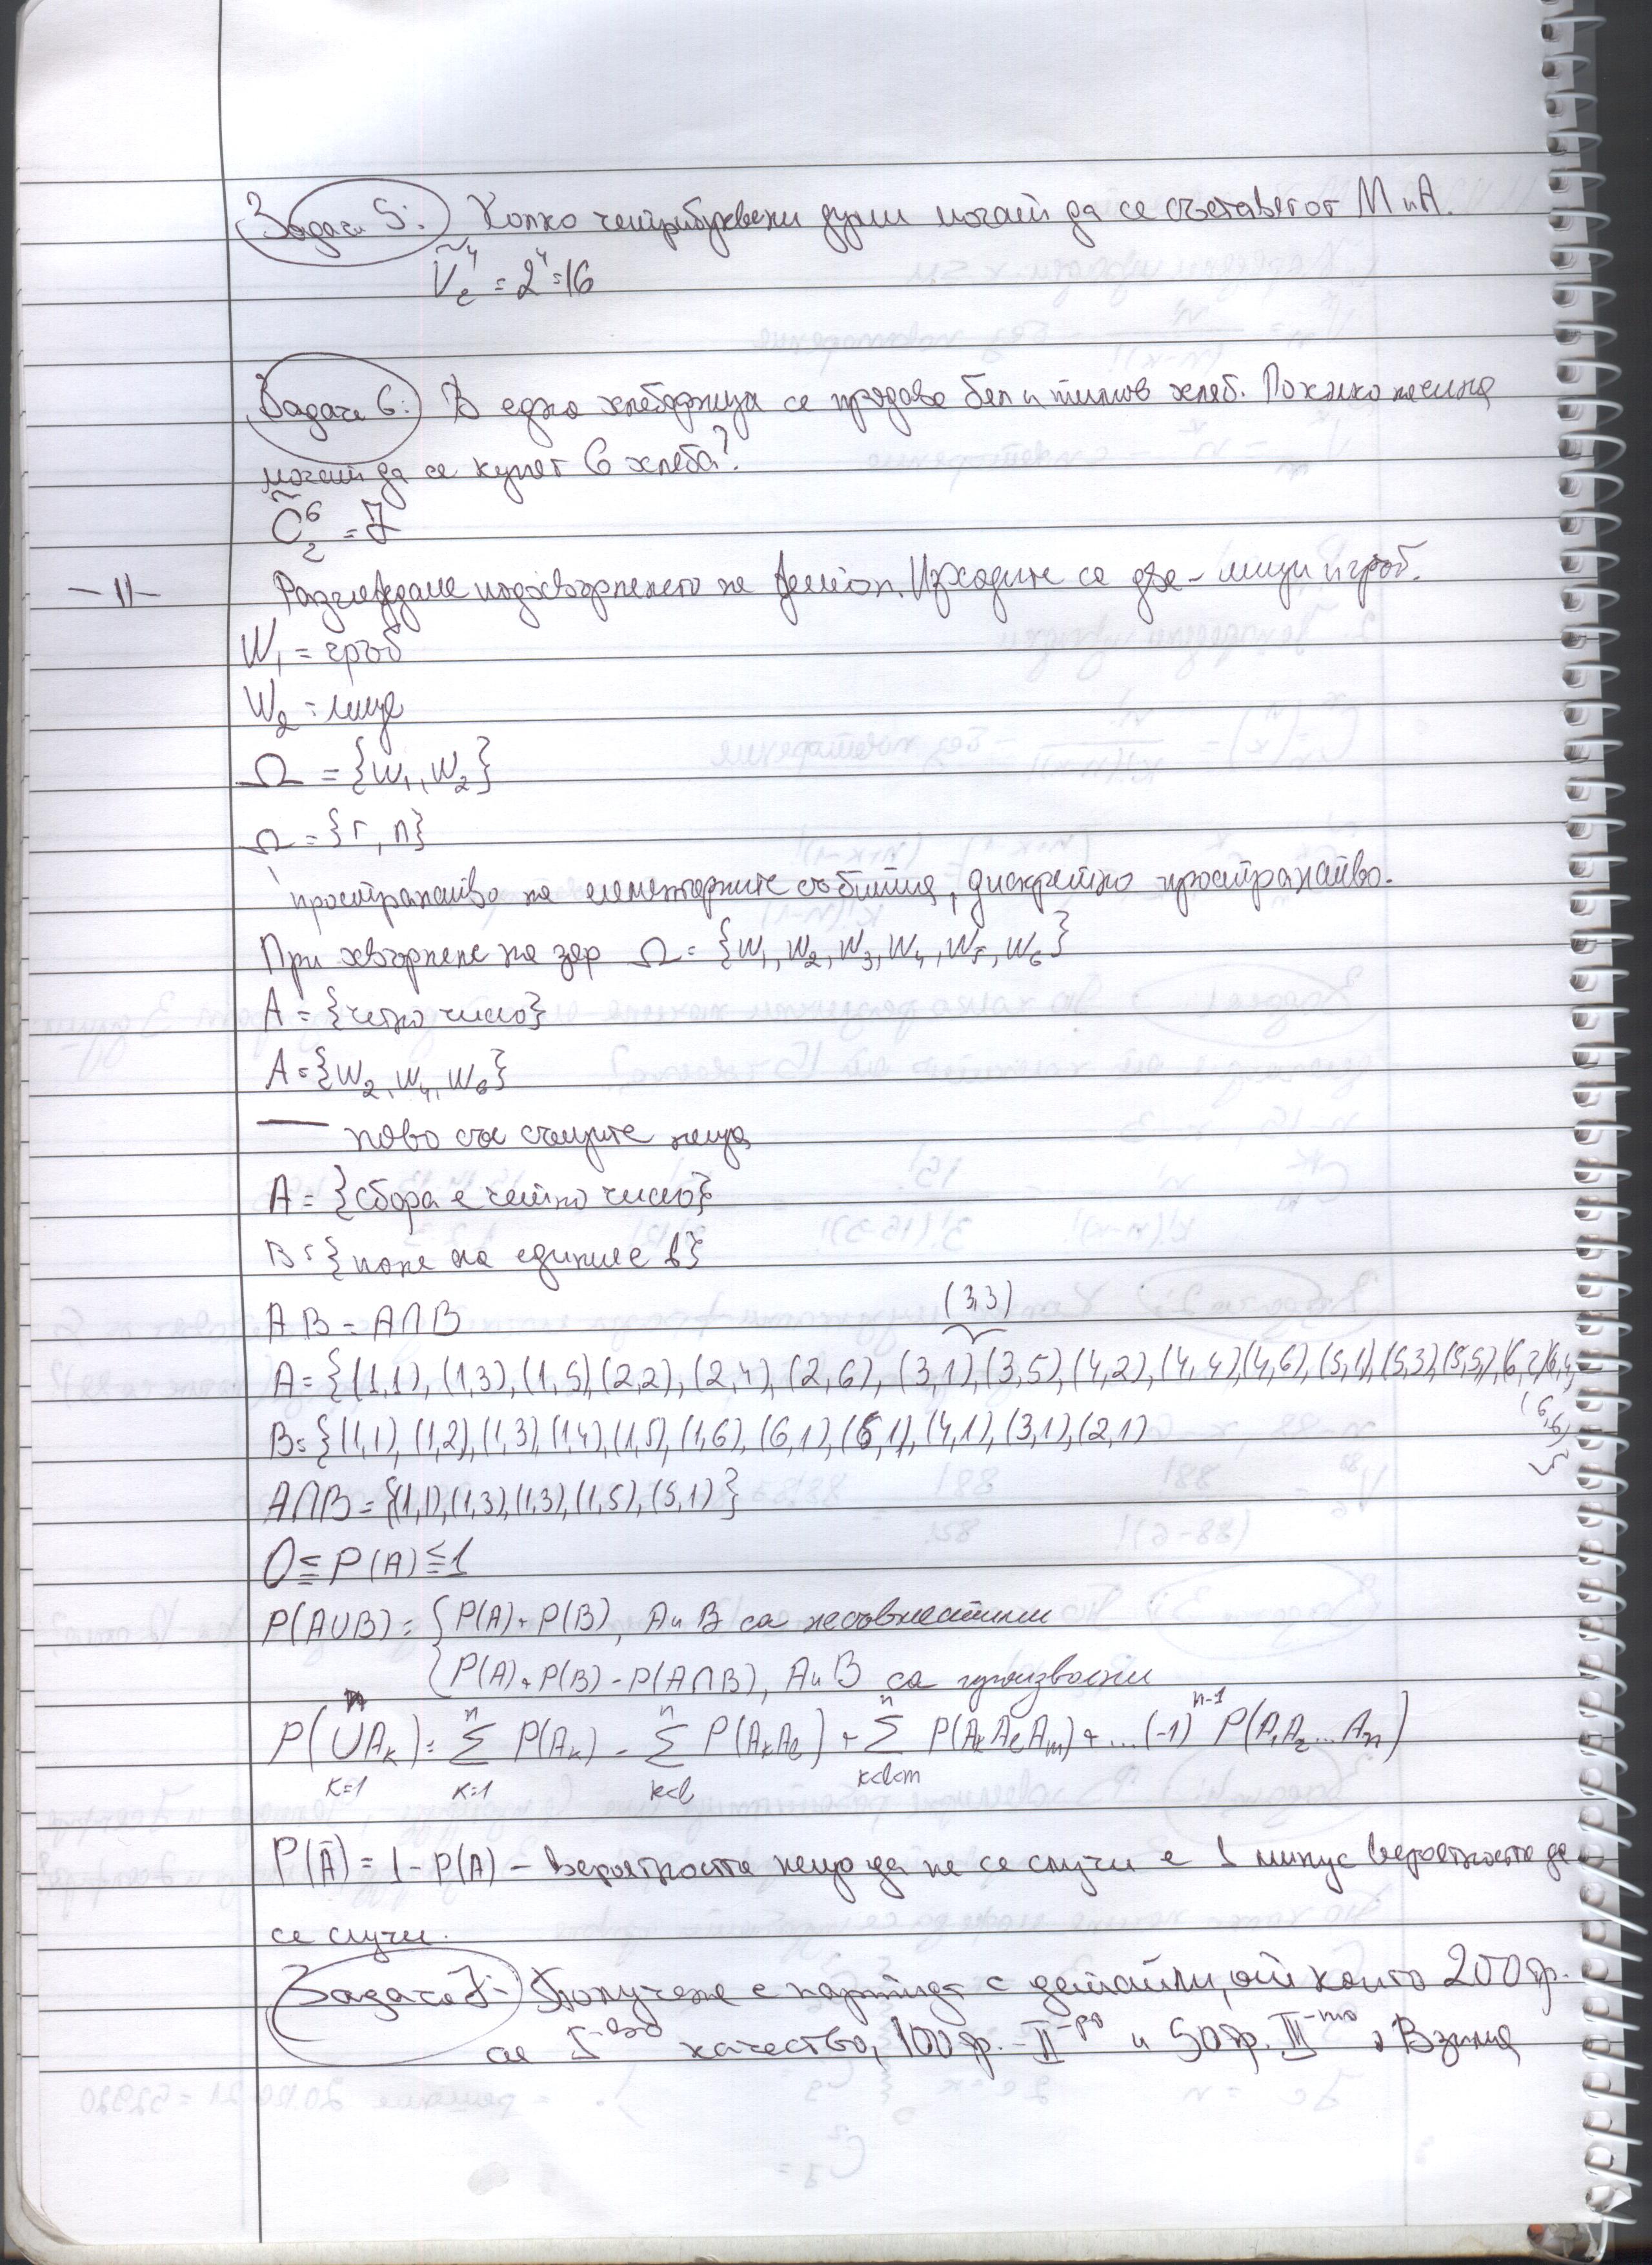 Задача 5: Колко четирибуквени думи могат да се съставят от М и А.
Ṽ₂⁴ = 2⁴ = 16
Задача 6: В една хлебарница се продава бял и типов хляб. По колко начина
могат да се купят 6 хляба?
C̃₂⁶ = 7
-11- Разглеждаме подхвърлянето на жетон. Изходите са два - лице и гръб.
W₁ = гръб
W₂ = лице
Ω = {W₁, W₂}
Ω = {Г, Л}
пространство на елементарните събития, дискретно пространство.
При хвърляне на зар Ω = {W₁, W₂, W₃, W₄, W₅, W₆}
A = {четно число}
A = {W₂, W₄, W₆}
— ново със същите неща
A = {сбора е четно число}
B = {поне на единия е 1}
AB = A∩B
(3,3)
A = {(1,1), (1,3), (1,5), (2,2), (2,4), (2,6), (3,1), (3,5), (4,2), (4,4) (4,6), (5,1), (5,3), (5,5), (6,2) (6,4)
(6,6)}
B = {(1,1), (1,2), (1,3) (1,4) (1,5), (1,6), (6,1), (5,1), (4,1), (3,1), (2,1)
A∩B = {(1,1), (1,3), (1,3), (1,5), (5,1)}
0 ≦ P(A) ≦ 1
P(A∪B) = { P(A) + P(B), A и B са несъвместими
{ P(A) + P(B) - P(A∩B), A и B са произволни
P(⋃ₖ₌₁ⁿ Aₖ) = Σₖ₌₁ⁿ P(Aₖ) - Σⁿ k<l P(AₖAₗ) + Σⁿ k<l<m P(AₖAₗAₘ) + ... (-1)ⁿ⁻¹ P(A₁A₂...Aₙ)
P(Ā) = 1 - P(A) - вероятността нещо да не се случи е 1 минус вероятността да
се случи.
Задача 7: Получена е партида с детайли, от които 200 бр.
са I-во качество, 100 бр. - II-ро и 50 бр. III-то. Взима